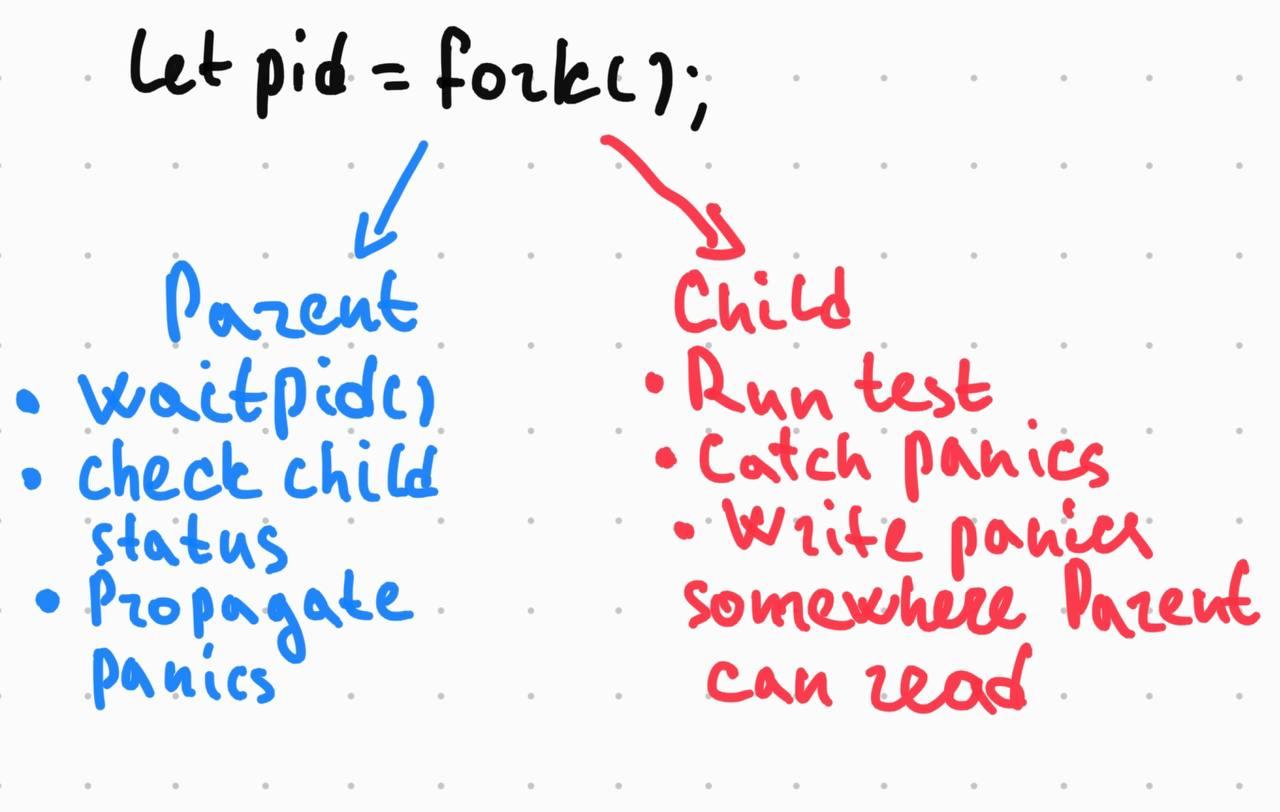 let pid = fork();
Parent
• waitpid()
• check child
status
• Propagate
panics
Child
• Run test
• Catch panics
• Write panics
somewhere Parent
can read